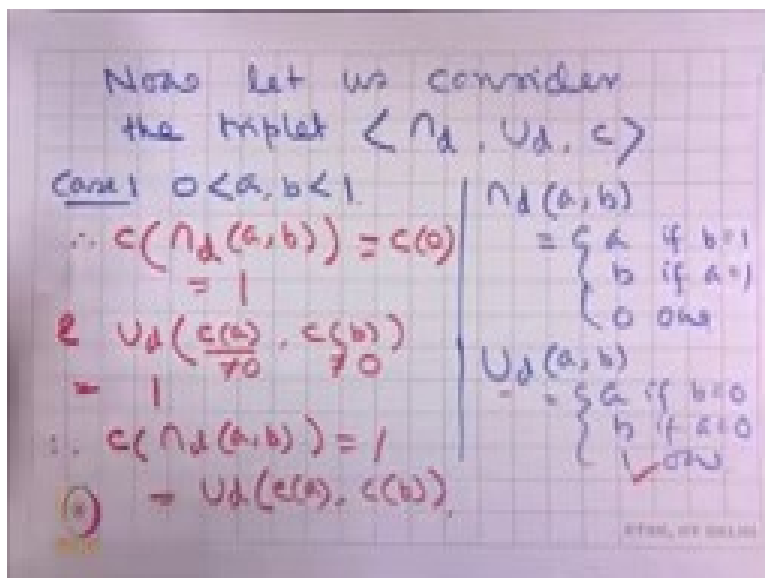 Now let us consider
the triplet < ∩d, ∪d, c >
Case 1 0 < a, b < 1
∴ c(∩d(a,b)) = c(0)
= 1
& ∪d(c(a), c(b))
≠0 ≠0
= 1
∴ c(∩d(a,b)) = 1
= ∪d(c(a), c(b)).
∩d(a,b)
= { a if b=1
b if a=1
0 otw
∪d(a,b)
= { a if b=0
b if a=0
1 otw